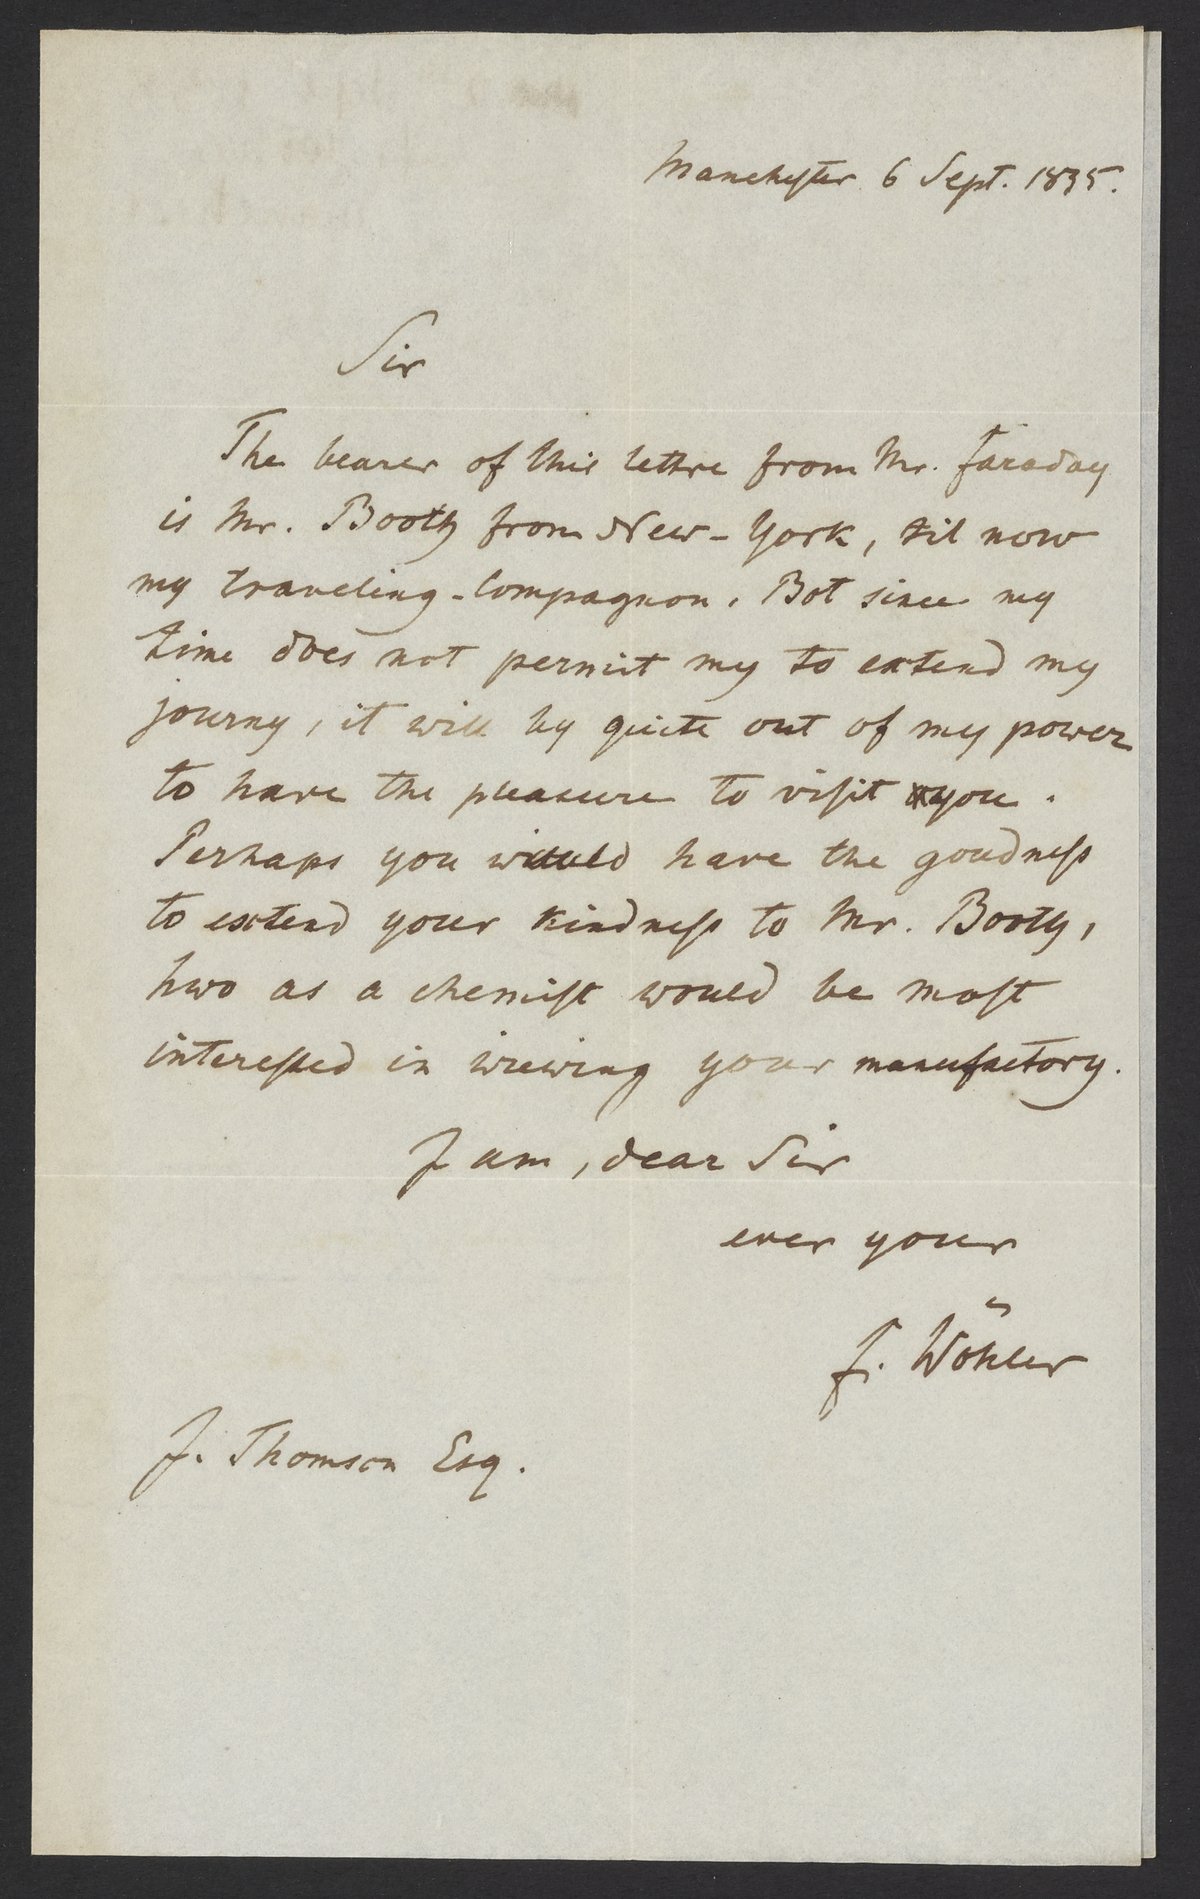 Manchester 6 Sept. 1835.
Sir
The bearer of this lettre from Mr. Faraday
is Mr. Booth from New-York, til now
my traveling-Compagnon. Bot since my
time does not permit my to extend my
journy, it will by quite out of my power
to have the pleasure to visit you.
Perhaps you would have the goodness
to extend your kindness to Mr. Booth,
hwo as a chemist would be most
interested in wiewing your manufactory.
I am, dear Sir
ever your
F. Wöhler
J. Thomson Esq.